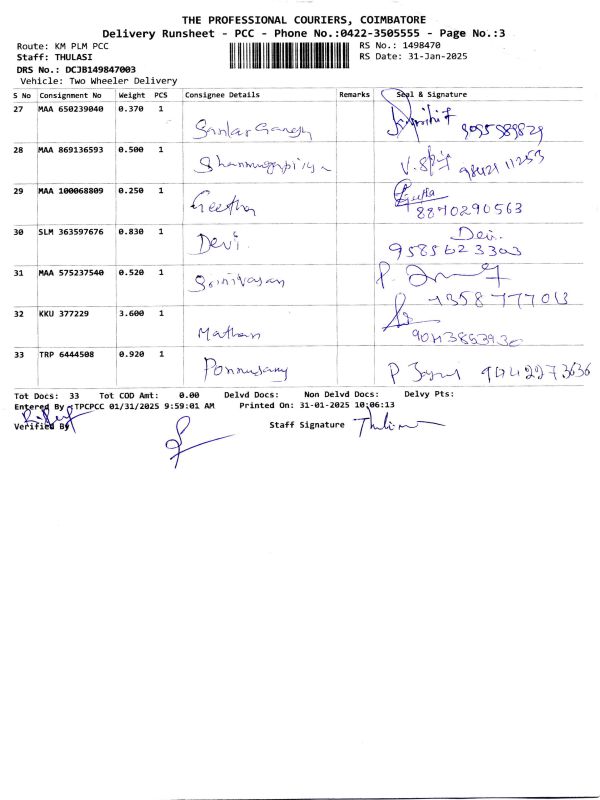 THE PROFESSIONAL COURIERS, COIMBATORE
Delivery Runsheet - PCC - Phone No.:0422-3505555 - Page No.:3
Route: KM PLM PCC RS No.: 1498470
Staff: THULASI RS Date: 31-Jan-2025
DRS No.: DCJB149847003
Vehicle: Two Wheeler Delivery
S No Consignment No Weight PCS Consignee Details Remarks Seal & Signature
27 MAA 650239040 0.370 1
Sankar Ganesh
28 MAA 869136593 0.500 1
Shanmugapriya 98421 11253
29 MAA 100068809 0.250 1
Geetha Geetha
8870290563
30 SLM 363597676 0.830 1 Devi.
Devi. 9585623303
31 MAA 575237540 0.520 1
Srinivasan
32 KKU 377229 3.600 1
Mathan
33 TRP 6444508 0.920 1
Ponnusamy
Tot Docs: 33 Tot COD Amt: 0.00 Delvd Docs: Non Delvd Docs: Delvy Pts:
Entered By :TPCPCC 01/31/2025 9:59:01 AM Printed On: 31-01-2025 10:06:13
Verified By Staff Signature